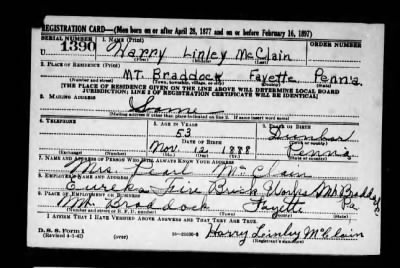 REGISTRATION CARD—(Men born on or after April 28, 1877 and on or before February 16, 1897)
SERIAL NUMBER 1. NAME (Print) ORDER NUMBER
U 1390 Harry Linley McClain
(First) (Middle) (Last)
2. PLACE OF RESIDENCE (Print)
MT. Braddock Fayette Penn'a
(Number and street) (Town, township, village, or city) (County) (State)
[THE PLACE OF RESIDENCE GIVEN ON THE LINE ABOVE WILL DETERMINE LOCAL BOARD
JURISDICTION; LINE 2 OF REGISTRATION CERTIFICATE WILL BE IDENTICAL]
3. MAILING ADDRESS
Same
[Mailing address if other than place indicated on line 2. If same insert word same]
4. TELEPHONE 5. AGE IN YEARS 6. PLACE OF BIRTH
53 Dunbar
DATE OF BIRTH (Town or county)
Nov. 12 1888 Penn'a
(Exchange) (Number) (Mo.) (Day) (Yr.) (State or country)
7. NAME AND ADDRESS OF PERSON WHO WILL ALWAYS KNOW YOUR ADDRESS
Mrs. Pearl McClain
8. EMPLOYER'S NAME AND ADDRESS
Eureka Fire Brick Works Mt Braddock
9. PLACE OF EMPLOYMENT OR BUSINESS Pa
Mt. Braddock Fayette
(Number and street or R. F. D. number) (Town) (County) (State)
I AFFIRM THAT I HAVE VERIFIED ABOVE ANSWERS AND THAT THEY ARE TRUE.
D. S. S. Form 1
(Revised 4-1-42) (over) Harry Linley McClain
(Registrant's signature)